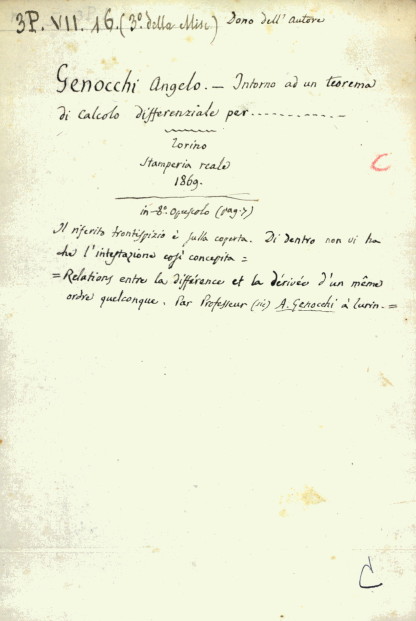 3P. VII. 16. (3º della Misc) Dono dell'autore
Genocchi Angelo. — Intorno ad un teorema
di calcolo differenziale per............–
Torino
Stamperia reale
1869.
in 8º. Opuscolo (pag. 7)
Il riferito frontispizio è sulla coperta. Di dentro non vi ha
che l'intestazione così concepita =
= Relations entre la différence et la dérivée d'un même
ordre quelconque. Par Professeur (sic) A. Genocchi à Turin. =
C